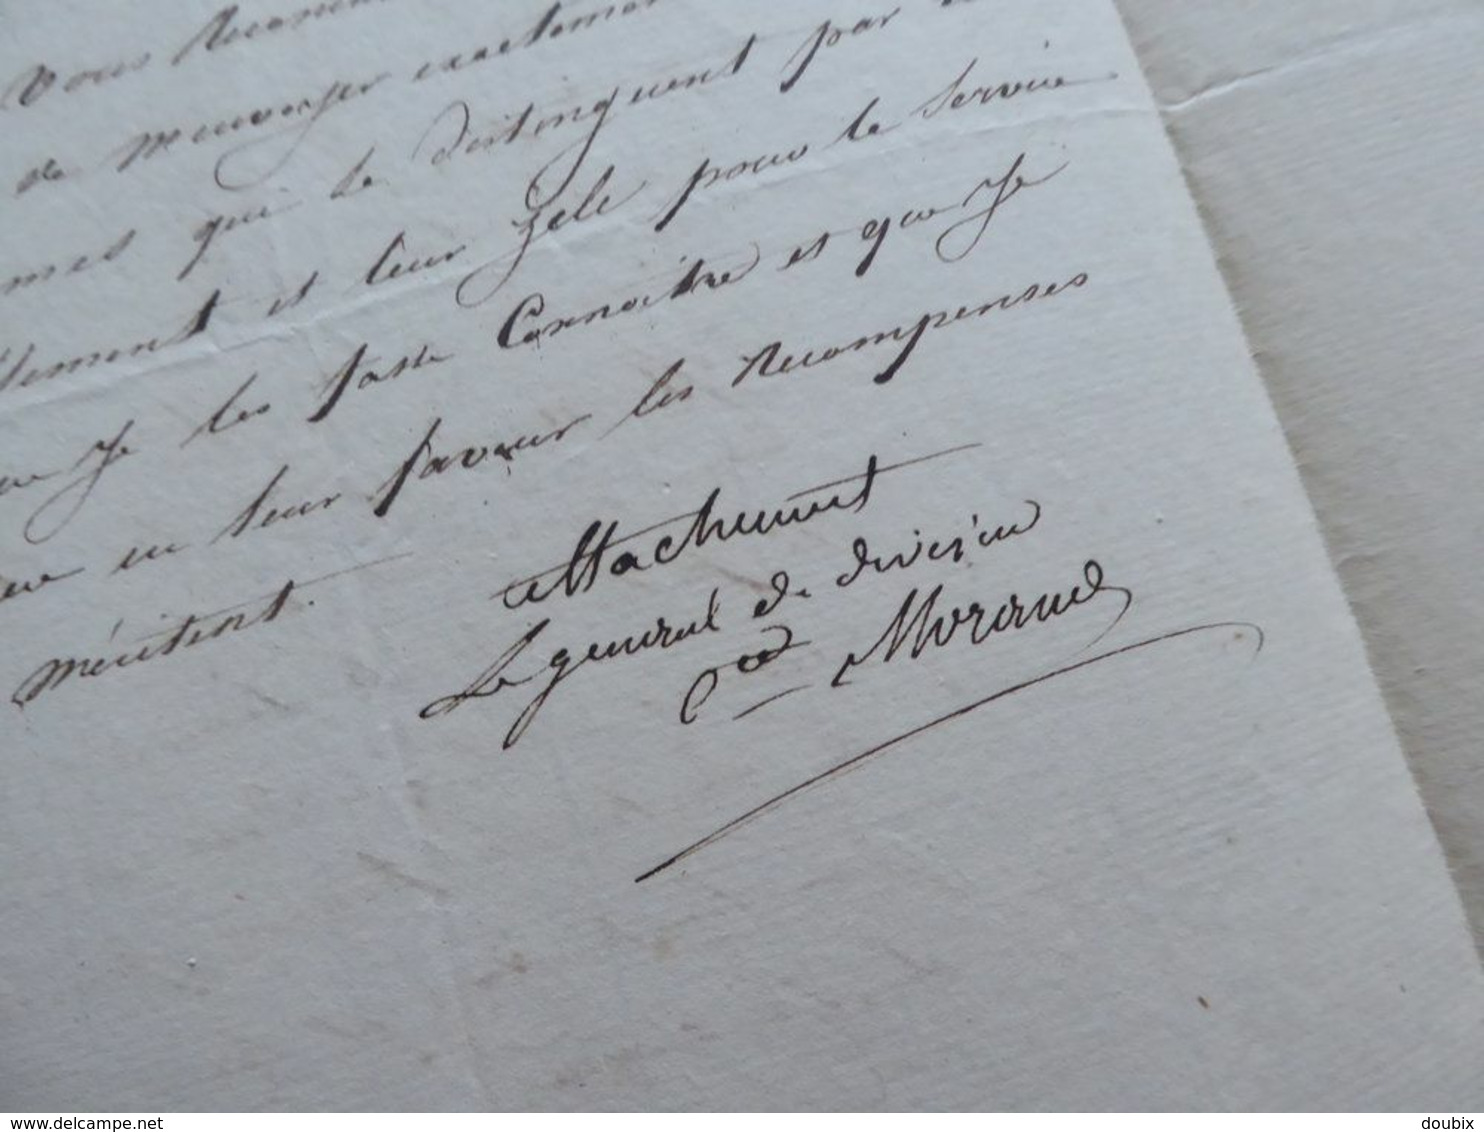 Vous
de menvoyer exactement
mes qui se distinguent par
lement et leur zele pour le service
que Je les fasse Connaitre et que Je
en leur faveur les Recompenses
méritent.
attachement
Le general de division
Cte Morand
www.delcampe.net
doubix